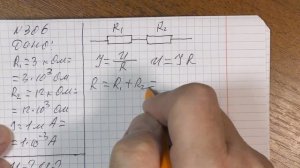 N 386
Дано:
R₁ = 3 кОм =
= 3·10³ Ом
R₂ = 12 кОм =
= 12·10³ Ом
I = 1 мА =
= 1·10⁻³ А
R₁ R₂
I = U/R U = IR
R = R₁ + R₂ =